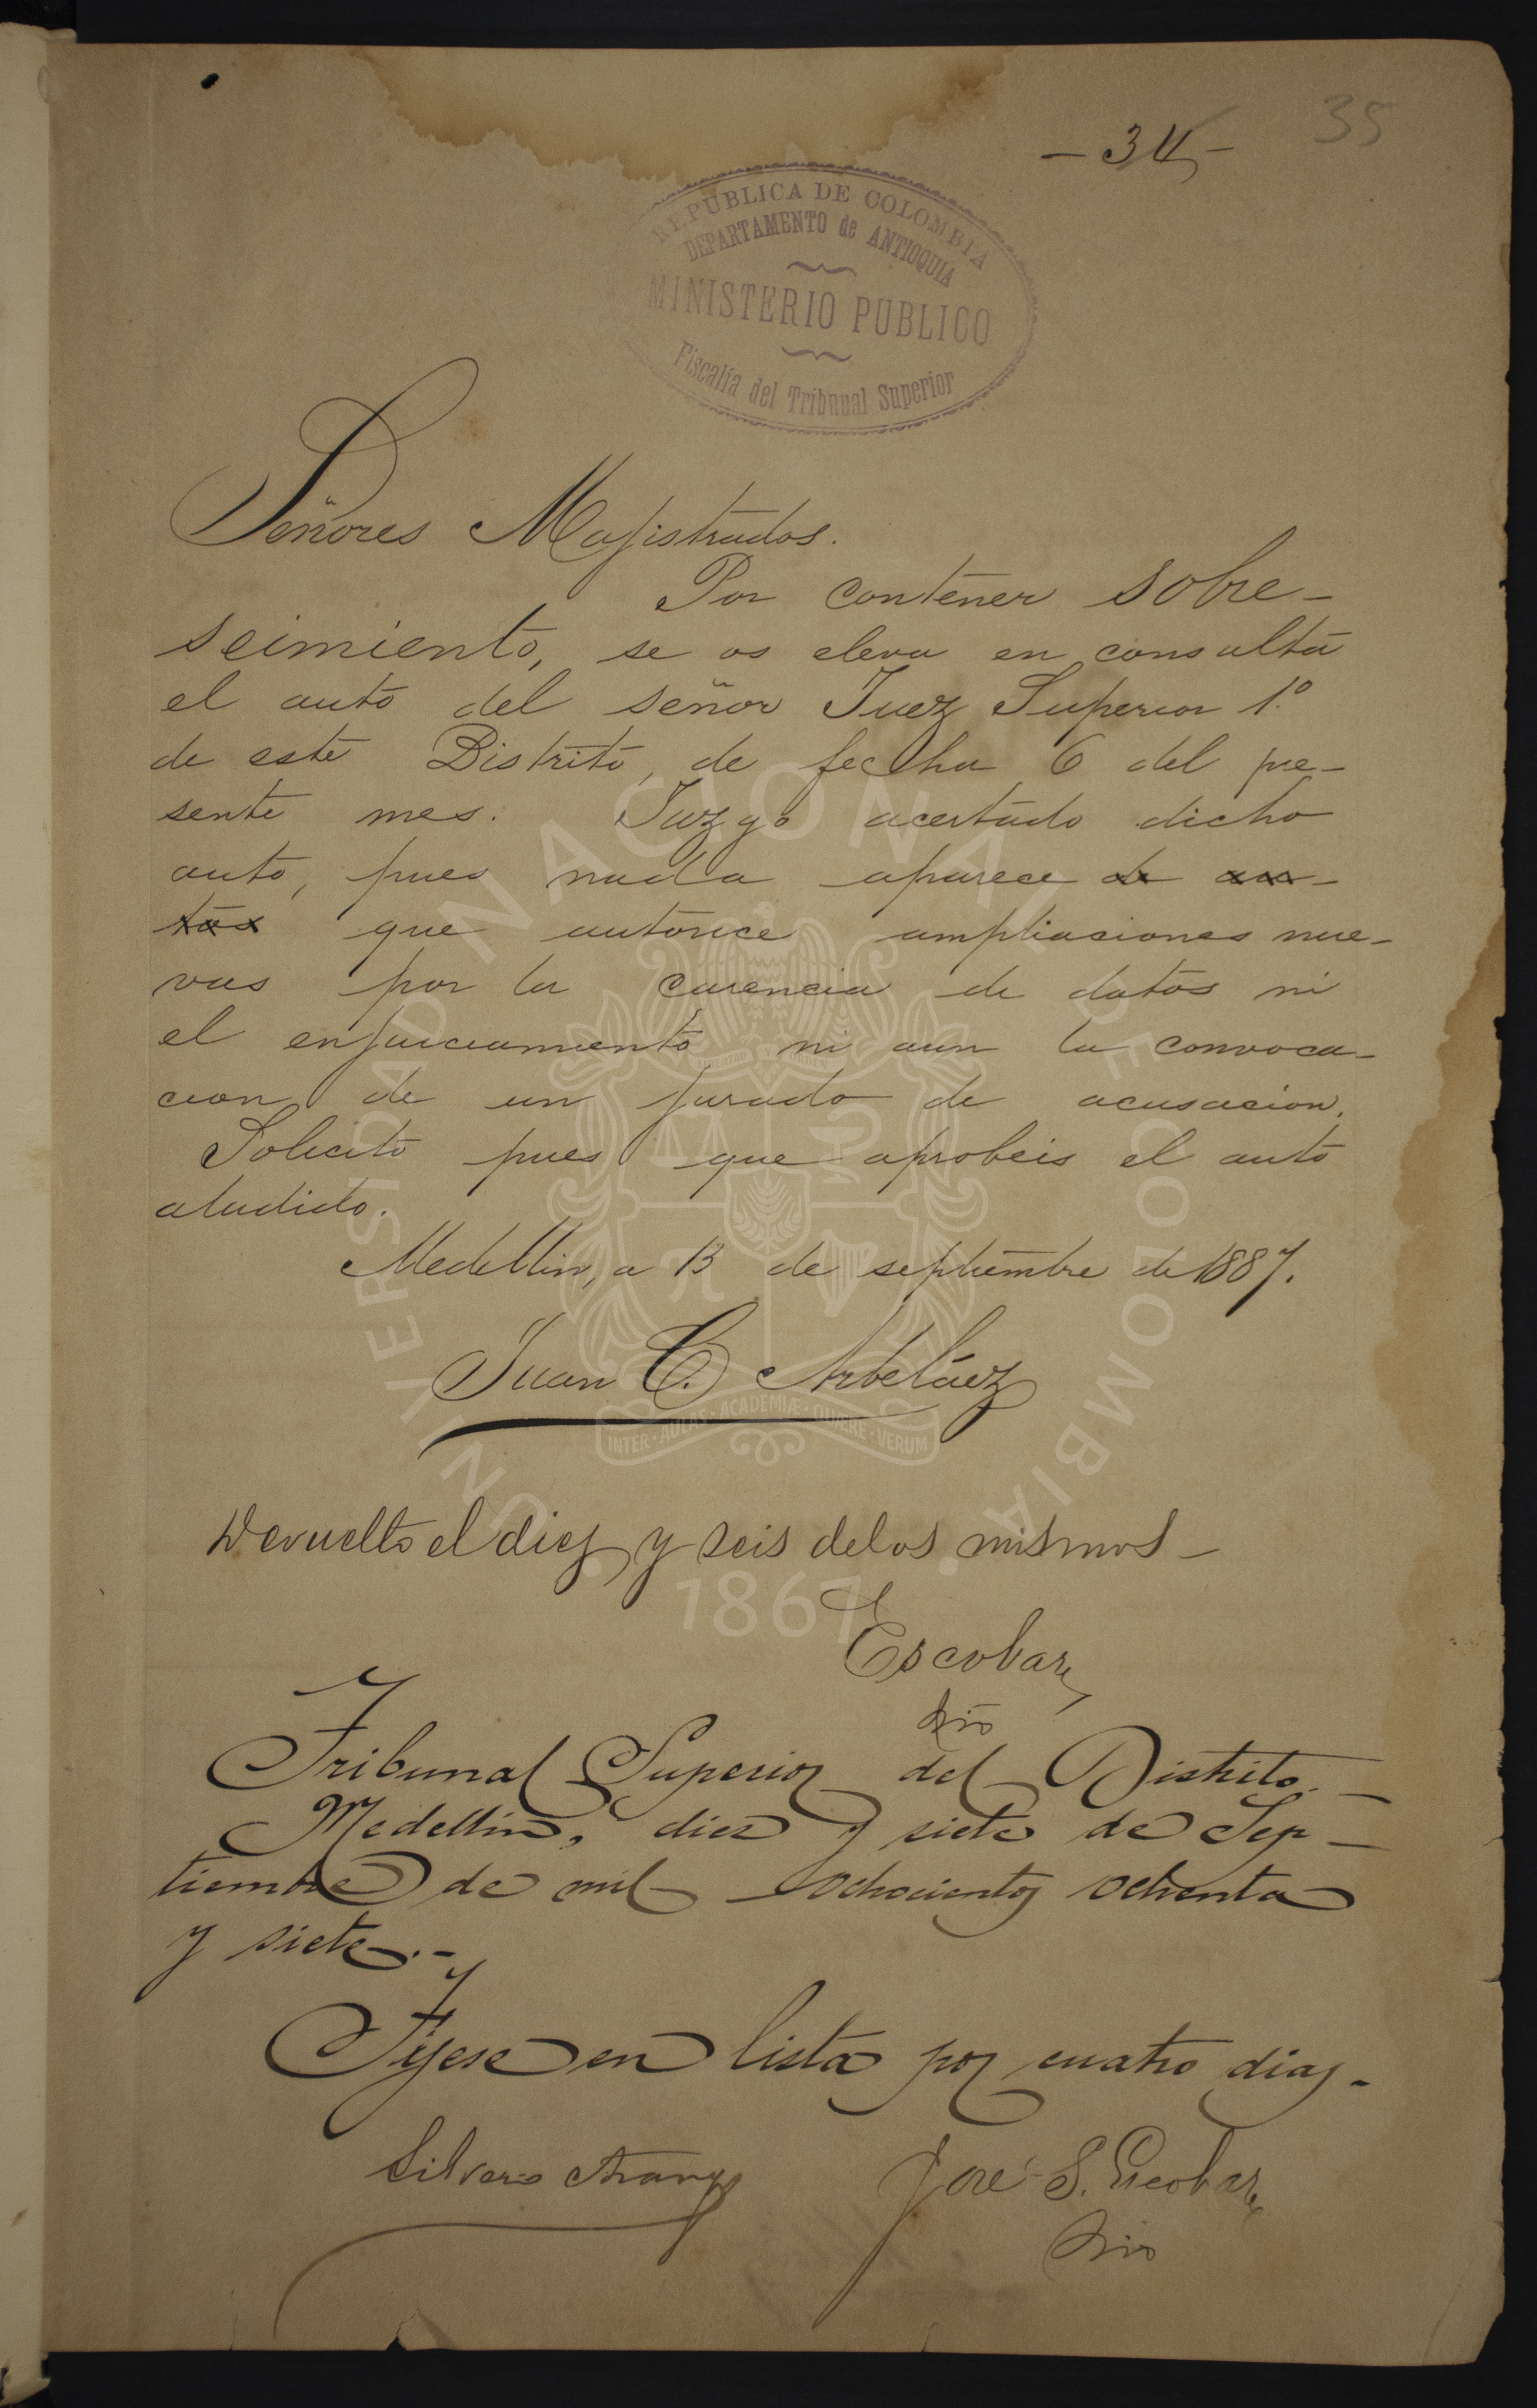 - 34 -
35
REPUBLICA DE COLOMBIA
DEPARTAMENTO de ANTIOQUIA
MINISTERIO PUBLICO
Fiscalía del Tribunal Superior
Señores Magistrados.
Por contener sobre-
seimiento, se os eleva en consulta
el auto del señor Juez Superior 1.º
de este Distrito, de fecha 6 del pre-
sente mes. Juzgo acertado dicho
auto, pues nada aparece de au-
tos que autorice ampliaciones nue-
vas por la carencia de datos ni
el enjuiciamiento ni aun la convoca-
cion de un jurado de acusacion.
Solicito pues que aprobeis el auto
aludido.
Medellin, a 13 de septiembre de 1887.
Juan C. Arbeláez
Devuelto el diez y seis de los mismos -
Escobar,
Srio
Tribunal Superior del Distrito. -
Medellín, diez y siete de Sep-
tiembre de mil ochocientos ochenta
y siete. -
Fíjese en lista por cuatro dias. -
Silverio Arango
José S. Escobar,
Srio
UNIVERSIDAD NACIONAL DE COLOMBIA
LIBERTAD Y ORDEN
INTER · AULAS · ACADEMIÆ · QUÆRE · VERUM
1867